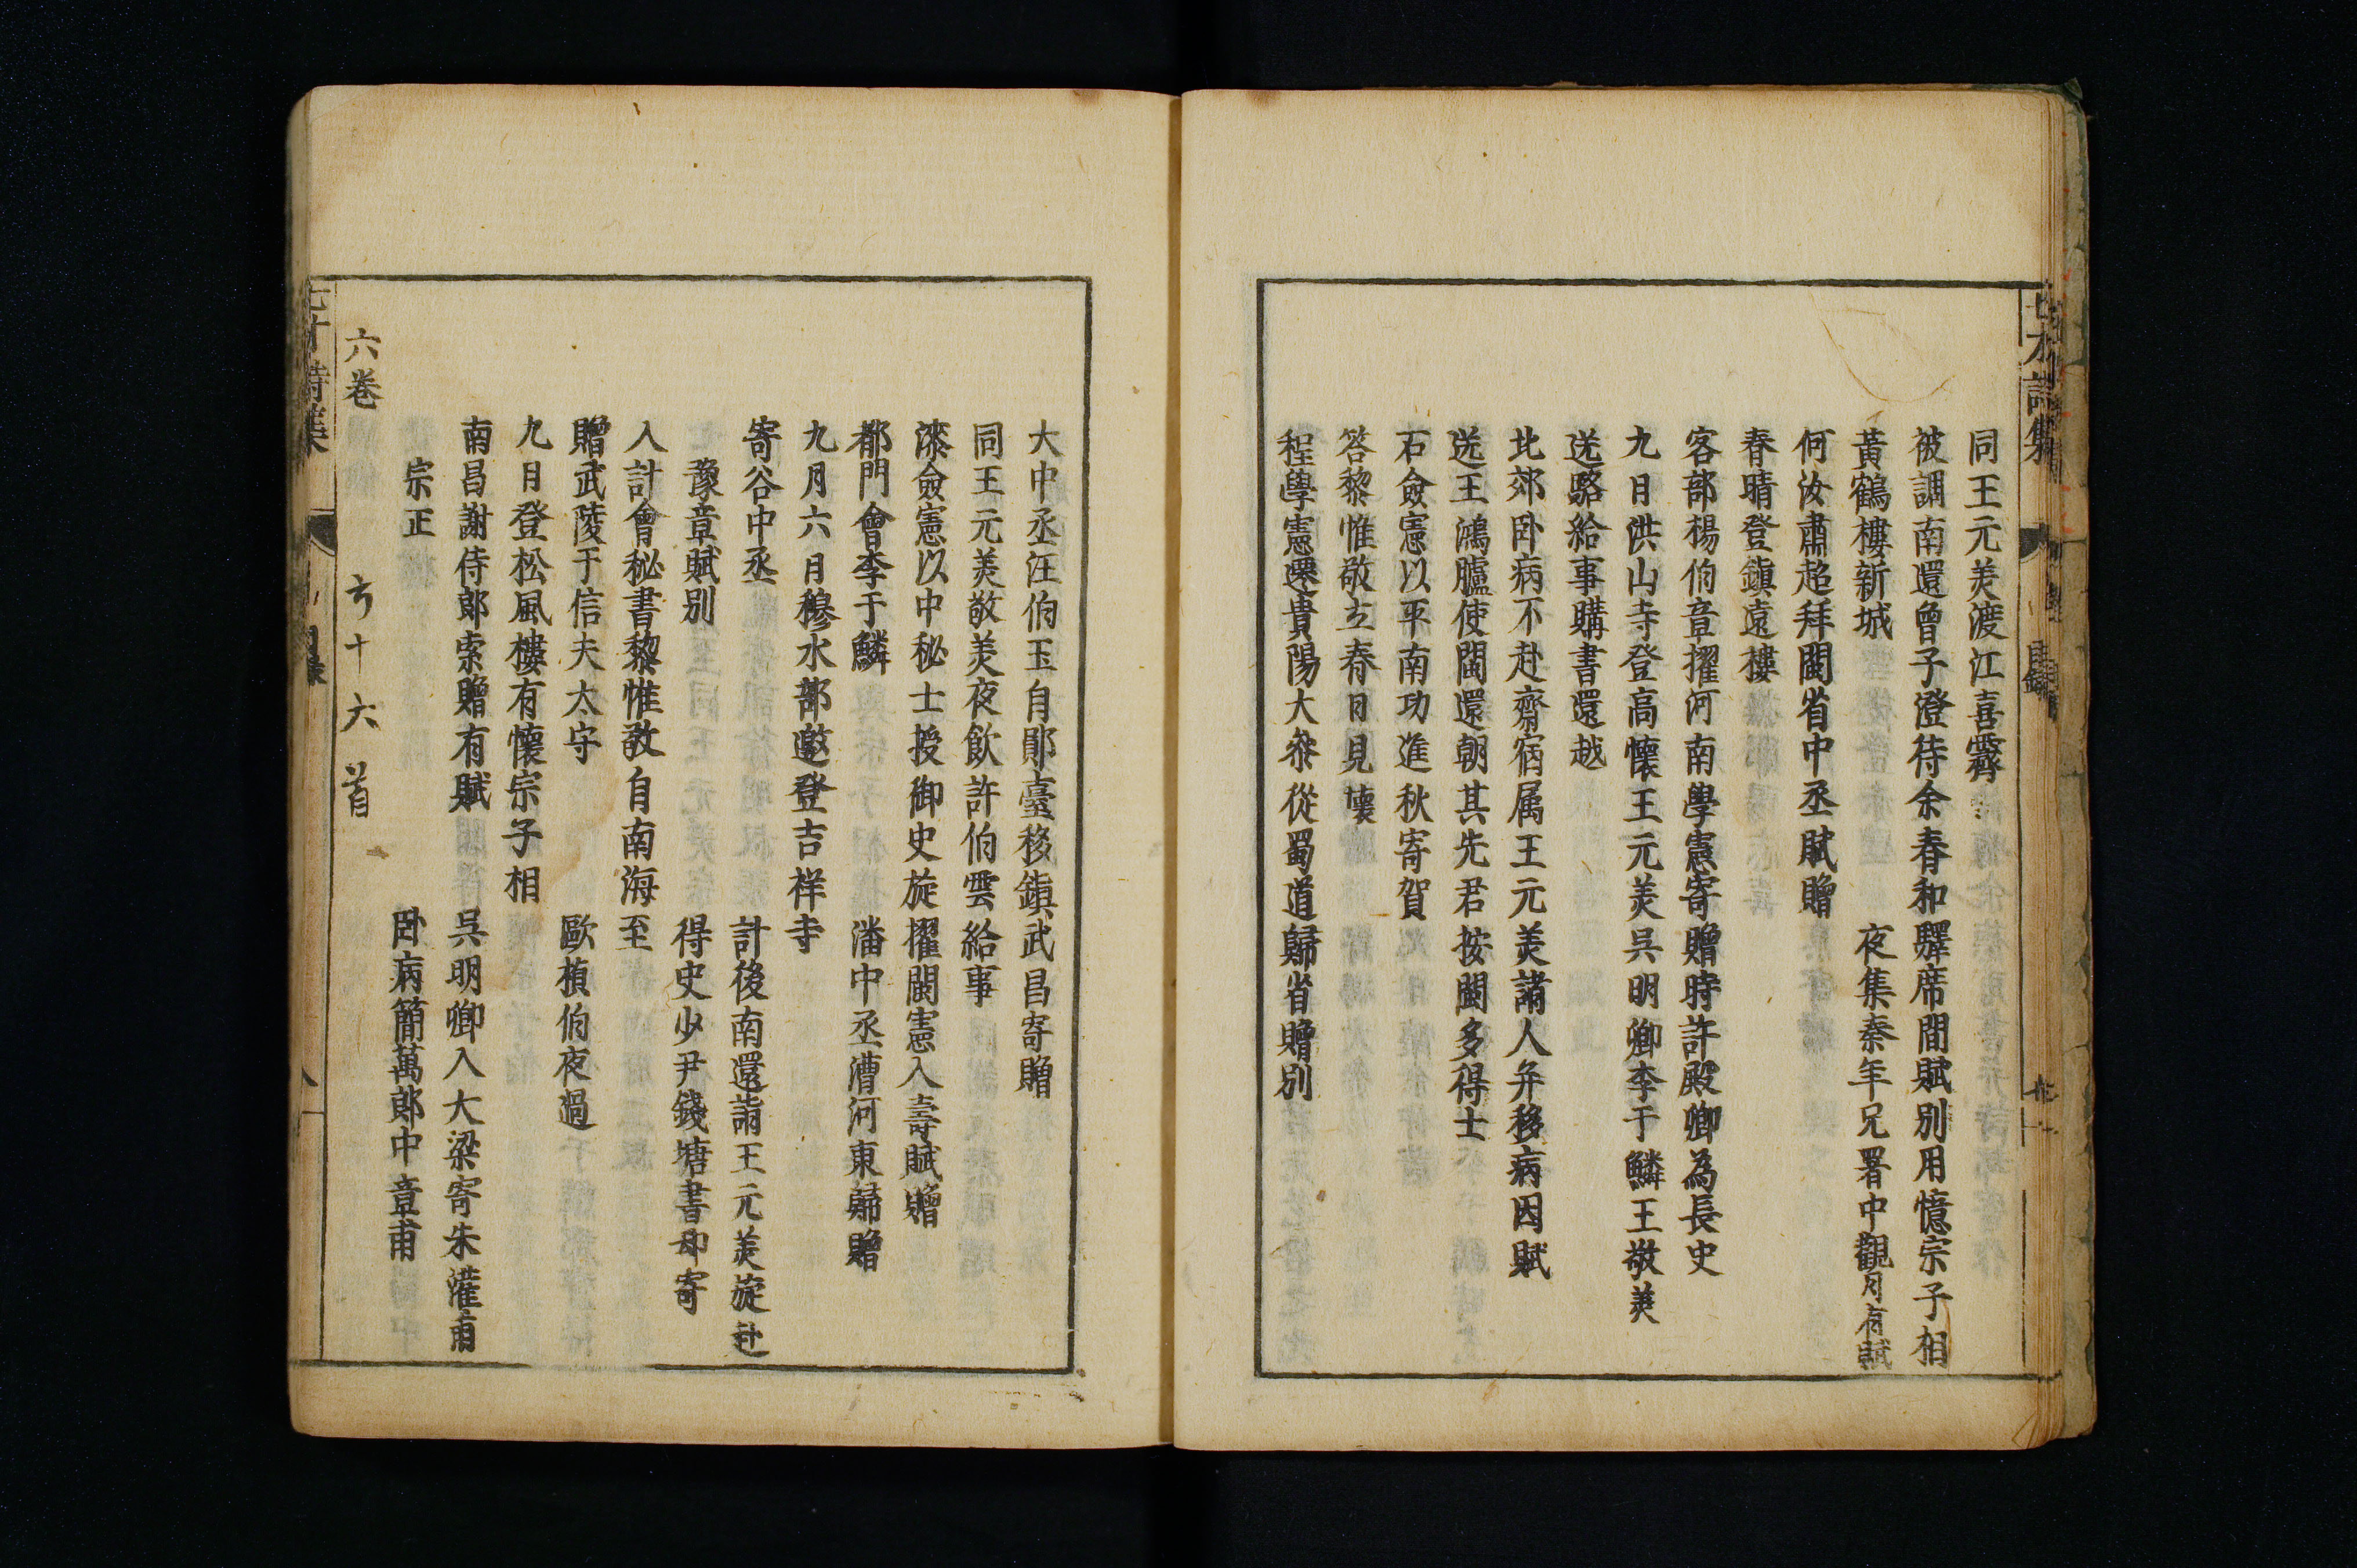 七才詩集
目錄
同王元美渡江喜霽
被調南還曾子澄待余春和驛席間賦別用憶宗子相
黃鶴樓新城 夜集秦年兄署中觀月有賦
何汝肅超拜閩省中丞賦贈
春晴登鎮遠樓
客部楊伯章擢河南學憲寄贈時許殿卿為長史
九日洪山寺登高懷王元美吳明卿李于鱗王敬美
送駱給事購書還越
北郊卧病不赴齋宿属王元美諸人弁移病因賦
送王鴻臚使閩還朝其先君按閩多得士
石僉憲以平南功進秋寄賀
答黎惟敬立春日見壞
程學憲遷貴陽大叅從蜀道歸省贈別
大中丞汪伯玉自鄖臺移鎮武昌寄贈
同王元美敬美夜飲許伯雲給事
漆僉憲以中秘士授御史旋擢閩憲入壽賦贈
都門會李于鱗 潘中丞漕河東歸贈
九月六日穆水部邀登吉祥寺
寄谷中丞 計後南還詶王元美旋赴
豫章賦別 得史少尹錢塘書却寄
入計會秘書黎惟敬自南海至
贈武陵于信夫太守 歐楨伯夜過
九日登松風樓有懷宗子相
南昌謝侍郎索贈有賦 吳明卿入大梁寄朱灌甫
宗正 卧病簡萬郎中章甫
六卷 亐十六首
七才詩集
目錄
八